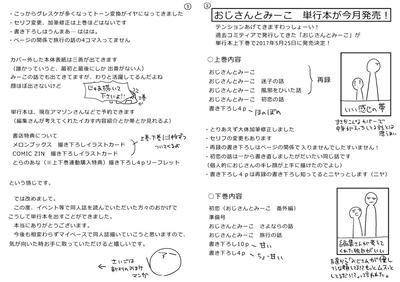 ②
おじさんとみーこ　単行本が今月発売！
テンションあげてきますわっしょーい！
過去コミティアで発行してきた「おじさんとみーこ」が
単行本上下巻で2017年5月25日に発売決定！
○上巻内容
おじさんとみーこ
おじさんとみーこ　迷子の話
おじさんとみーこ　風邪をひいた話
おじさんとみーこ　初恋の話
再録
描き下ろし4p
ほのぼの
いい感じの帯
・とりあえず大体加筆修正しました
・セリフの変更もあります
・再録の書き下ろしはページの関係で入りませんでしたすいません！
・初恋の話は一から書き直しましたがだいたい同じ話です
○下巻内容
初恋（おじさんとみーこ　番外編）
準備号
おじさんとみーこ　さよならの話
おじさんとみーこ　旅行の話
描き下ろし10p
甘い
描き下ろし4p
ちょい甘い
③
・こっからグレスケが多くなってトーン変換がイヤになってきました
・セリフ変更、加筆修正は上巻ほどはないです
・書き下ろしはうんまあ… ははは。
・ページの関係で旅行の話の4コマ入ってません
カバー外した本体表紙は三善が出てきます
（誰かっていうと、最初と最後にしか出番がない人）
みーこの話でも出てきてますが、わりと活躍してるんだよね
顔はほぼ出ないけど
じゃあ描いて
下さいよ!!
単行本は、現在アマゾンさんなどで予約できます
（編集さんが考えてくれたイカす内容紹介とか帯とか見れるよ）
書店特典について
メロンブックス　描き下ろしイラストカード
COMIC ZIN　描き下ろしイラストカード
とらのあな（※上下巻連動購入特典）描き下ろし4pリーフレット
という感じです。
では改めまして。
この度、イベント等で同人誌を読んでいただいた方々のおかげで
こうして単行本を出すことができました。
本当にありがとうございます。
今後も相変わらずマイペースで同人誌描いていこうと思いますので、
気が向いた時お手に取っていただけると嬉しいです。
アー